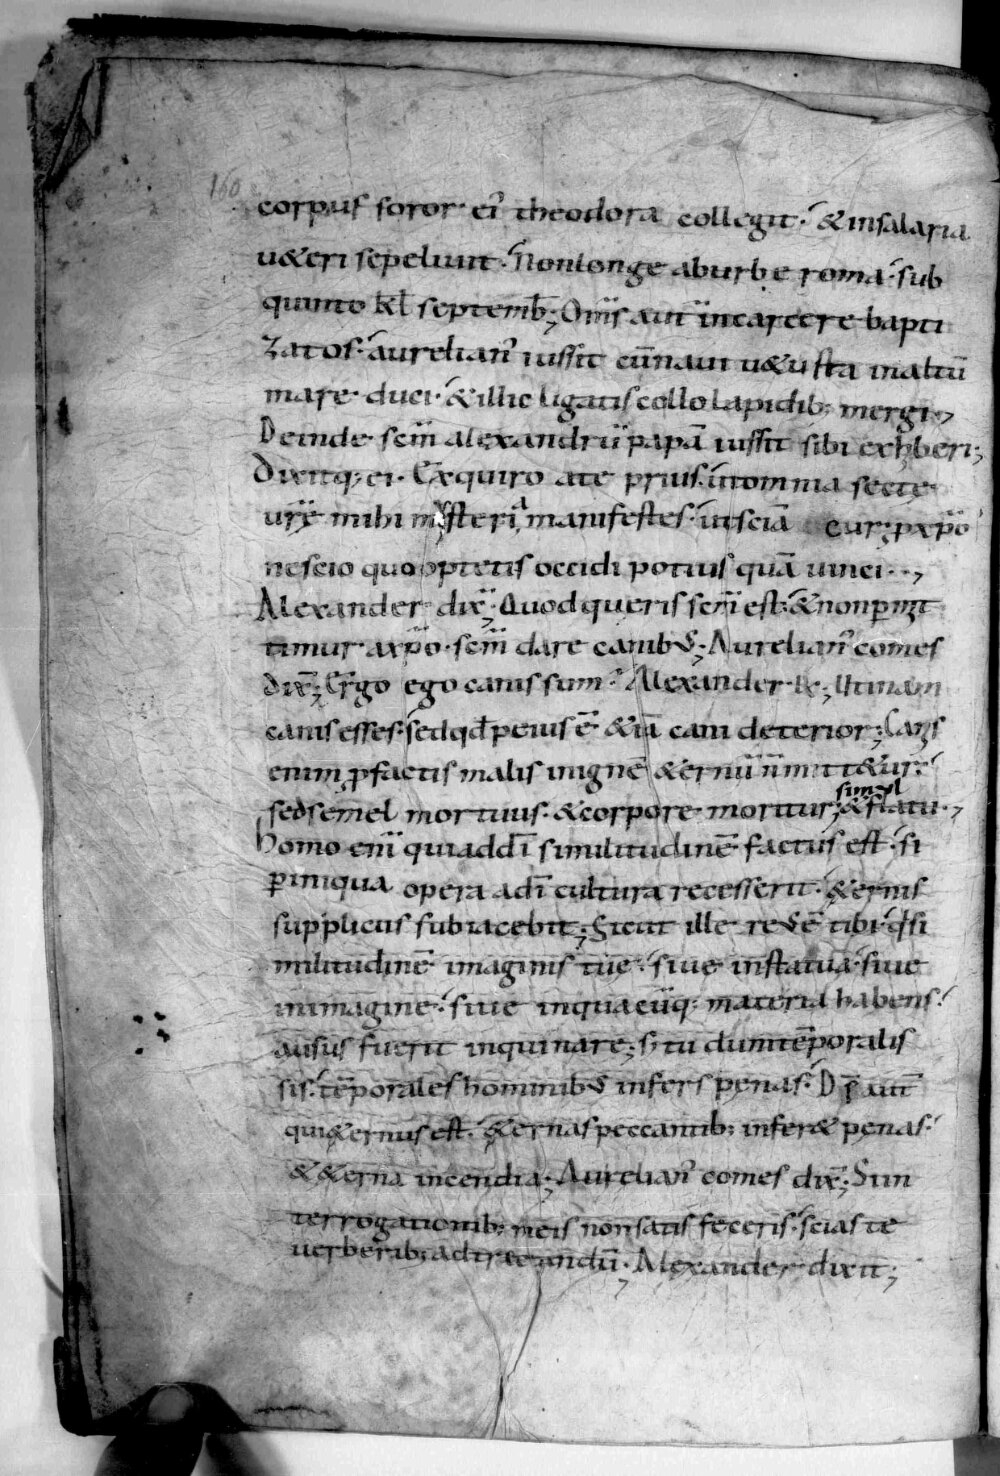 160
corpus soror ei᾿ theodora collegit · & insalaria
u&eri sepeliuit · Nonlonge aburbe roma · sub
quinto kł septemb̄; Om̄s aut̄ incarcere bapti
zatos · aurelian᾿ iussit cū naui u&usta inaltū
mare duci · & illic ligatis collo lapidib; mergi;
Deinde sc̄m alexandrū papā iussit sibi exhiberi;
Dixitq; ei · Exquiro ate prius · ut omnia secte
ur̄ę mihi mysteria manifestes · ut sciā cur p xp̄o
nescio quo optetis occidi potius quā uinci ··,
Alexander dix̄; Quod queris sc̄m est · & non pmit
timur axp̄o · sc̄m dare canib;; Aurelian᾿ comes
dix̄; Ergo ego canis sum · Alexander R̄; Utinam
canis esses · sed qđ peius ē & iā cani deterior; Canis
enim p factis malis inignē &ernū n̄ mitt&ur ·
sed semel mortuus · & corpore moritur; & flatu ·,
simul
homo eni quiaddī similitudinē factus est · si
p iniqua opera adī cultura recesserit · &ernis
suppliciis subiacebit; Sicut ille reus ē tibi · q̄ si
militudinē imaginis tuę · siue instatua · siue
inimagine · siue inquacūq; materia habens ·
ausus fuerit inquinare; si tu cum tēporalis
sis · tēporales hominib; infers penas · D̄s aut̄
qui&ernus est · &ernas peccantib; infer& penas ·
& &erna incendia; Aurelian᾿ comes dix̄; Siin
terrogationib; meis nonsatis feceris · scias te
uerberib; adtrectandū; Alexander dixit;